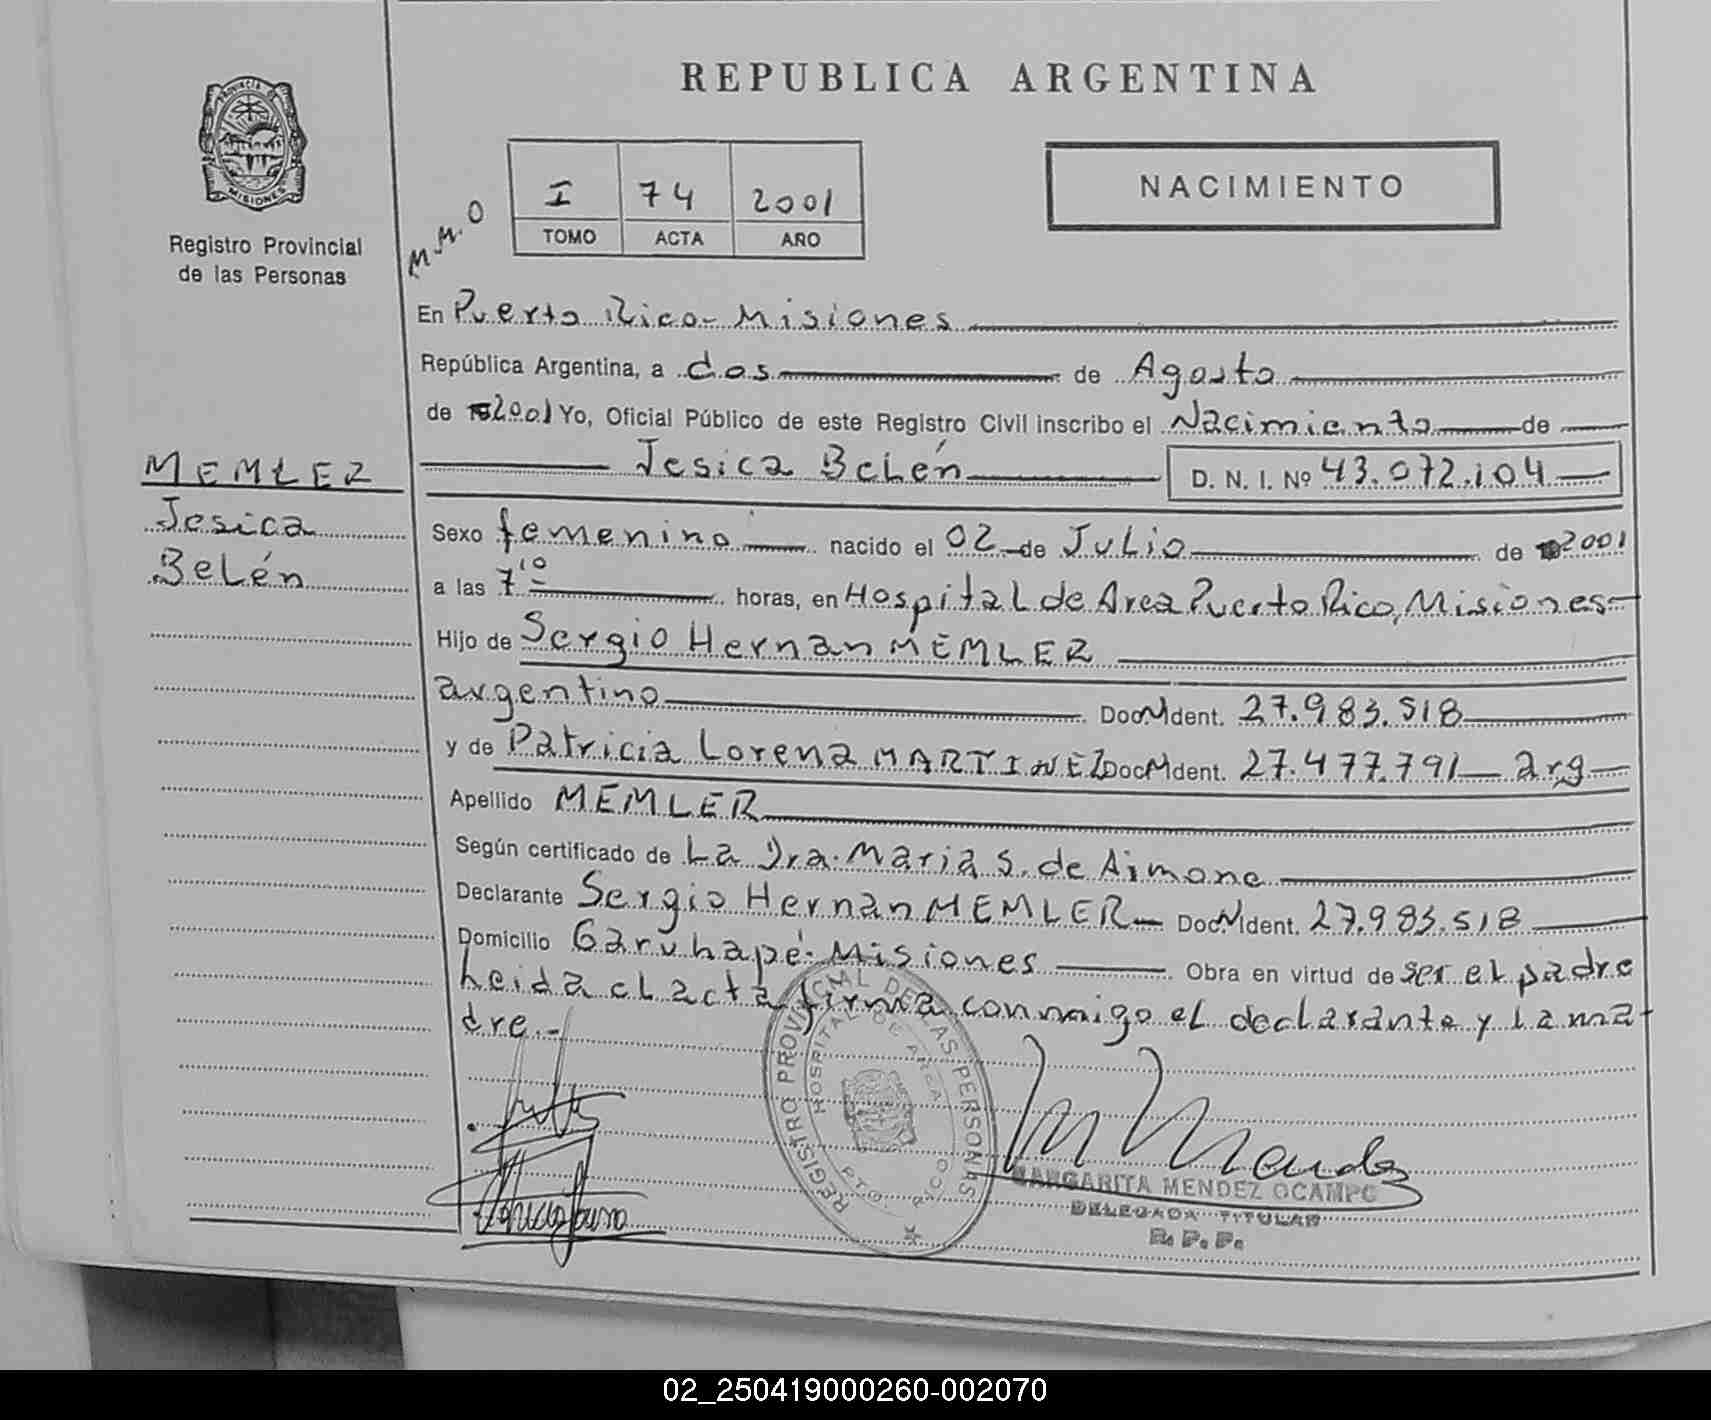 REPUBLICA ARGENTINA
PROVINCIA DE
MISIONES
Registro Provincial
de las Personas
M.M.O
I 74 2001
TOMO ACTA AÑO
NACIMIENTO
En Puerto Rico - Misiones
República Argentina, a dos de Agosto
de 2001 Yo, Oficial Público de este Registro Civil inscribo el Nacimiento de
Jesica Belén D. N. I. Nº 43.072.104
MEMLER
Jesica
Belén
Sexo femenino nacido el 02 de Julio de 2001
a las 7 10 horas, en Hospital de Area Puerto Rico, Misiones-
Hijo de Sergio Hernan MEMLER
argentino Doc. M Ident. 27.983.518
y de Patricia Lorena MARTINEZ Doc M Ident. 27.477.791 - arg
Apellido MEMLER
Según certificado de La Dra. Maria S. de Aimone
Declarante Sergio Hernan MEMLER - Doc. N Ident. 27.983.518
Domicilio Garuhapé - Misiones Obra en virtud de ser el padre
leida el acta firma conmigo el declarante y la ma-
dre.-
REGISTRO PROVINCIAL DE LAS PERSONAS
HOSPITAL DE AREA
PTO. RICO
M Mendez
MARGARITA MENDEZ OCAMPO
DELEGADA TITULAR
R. P. P.
02_250419000260-002070